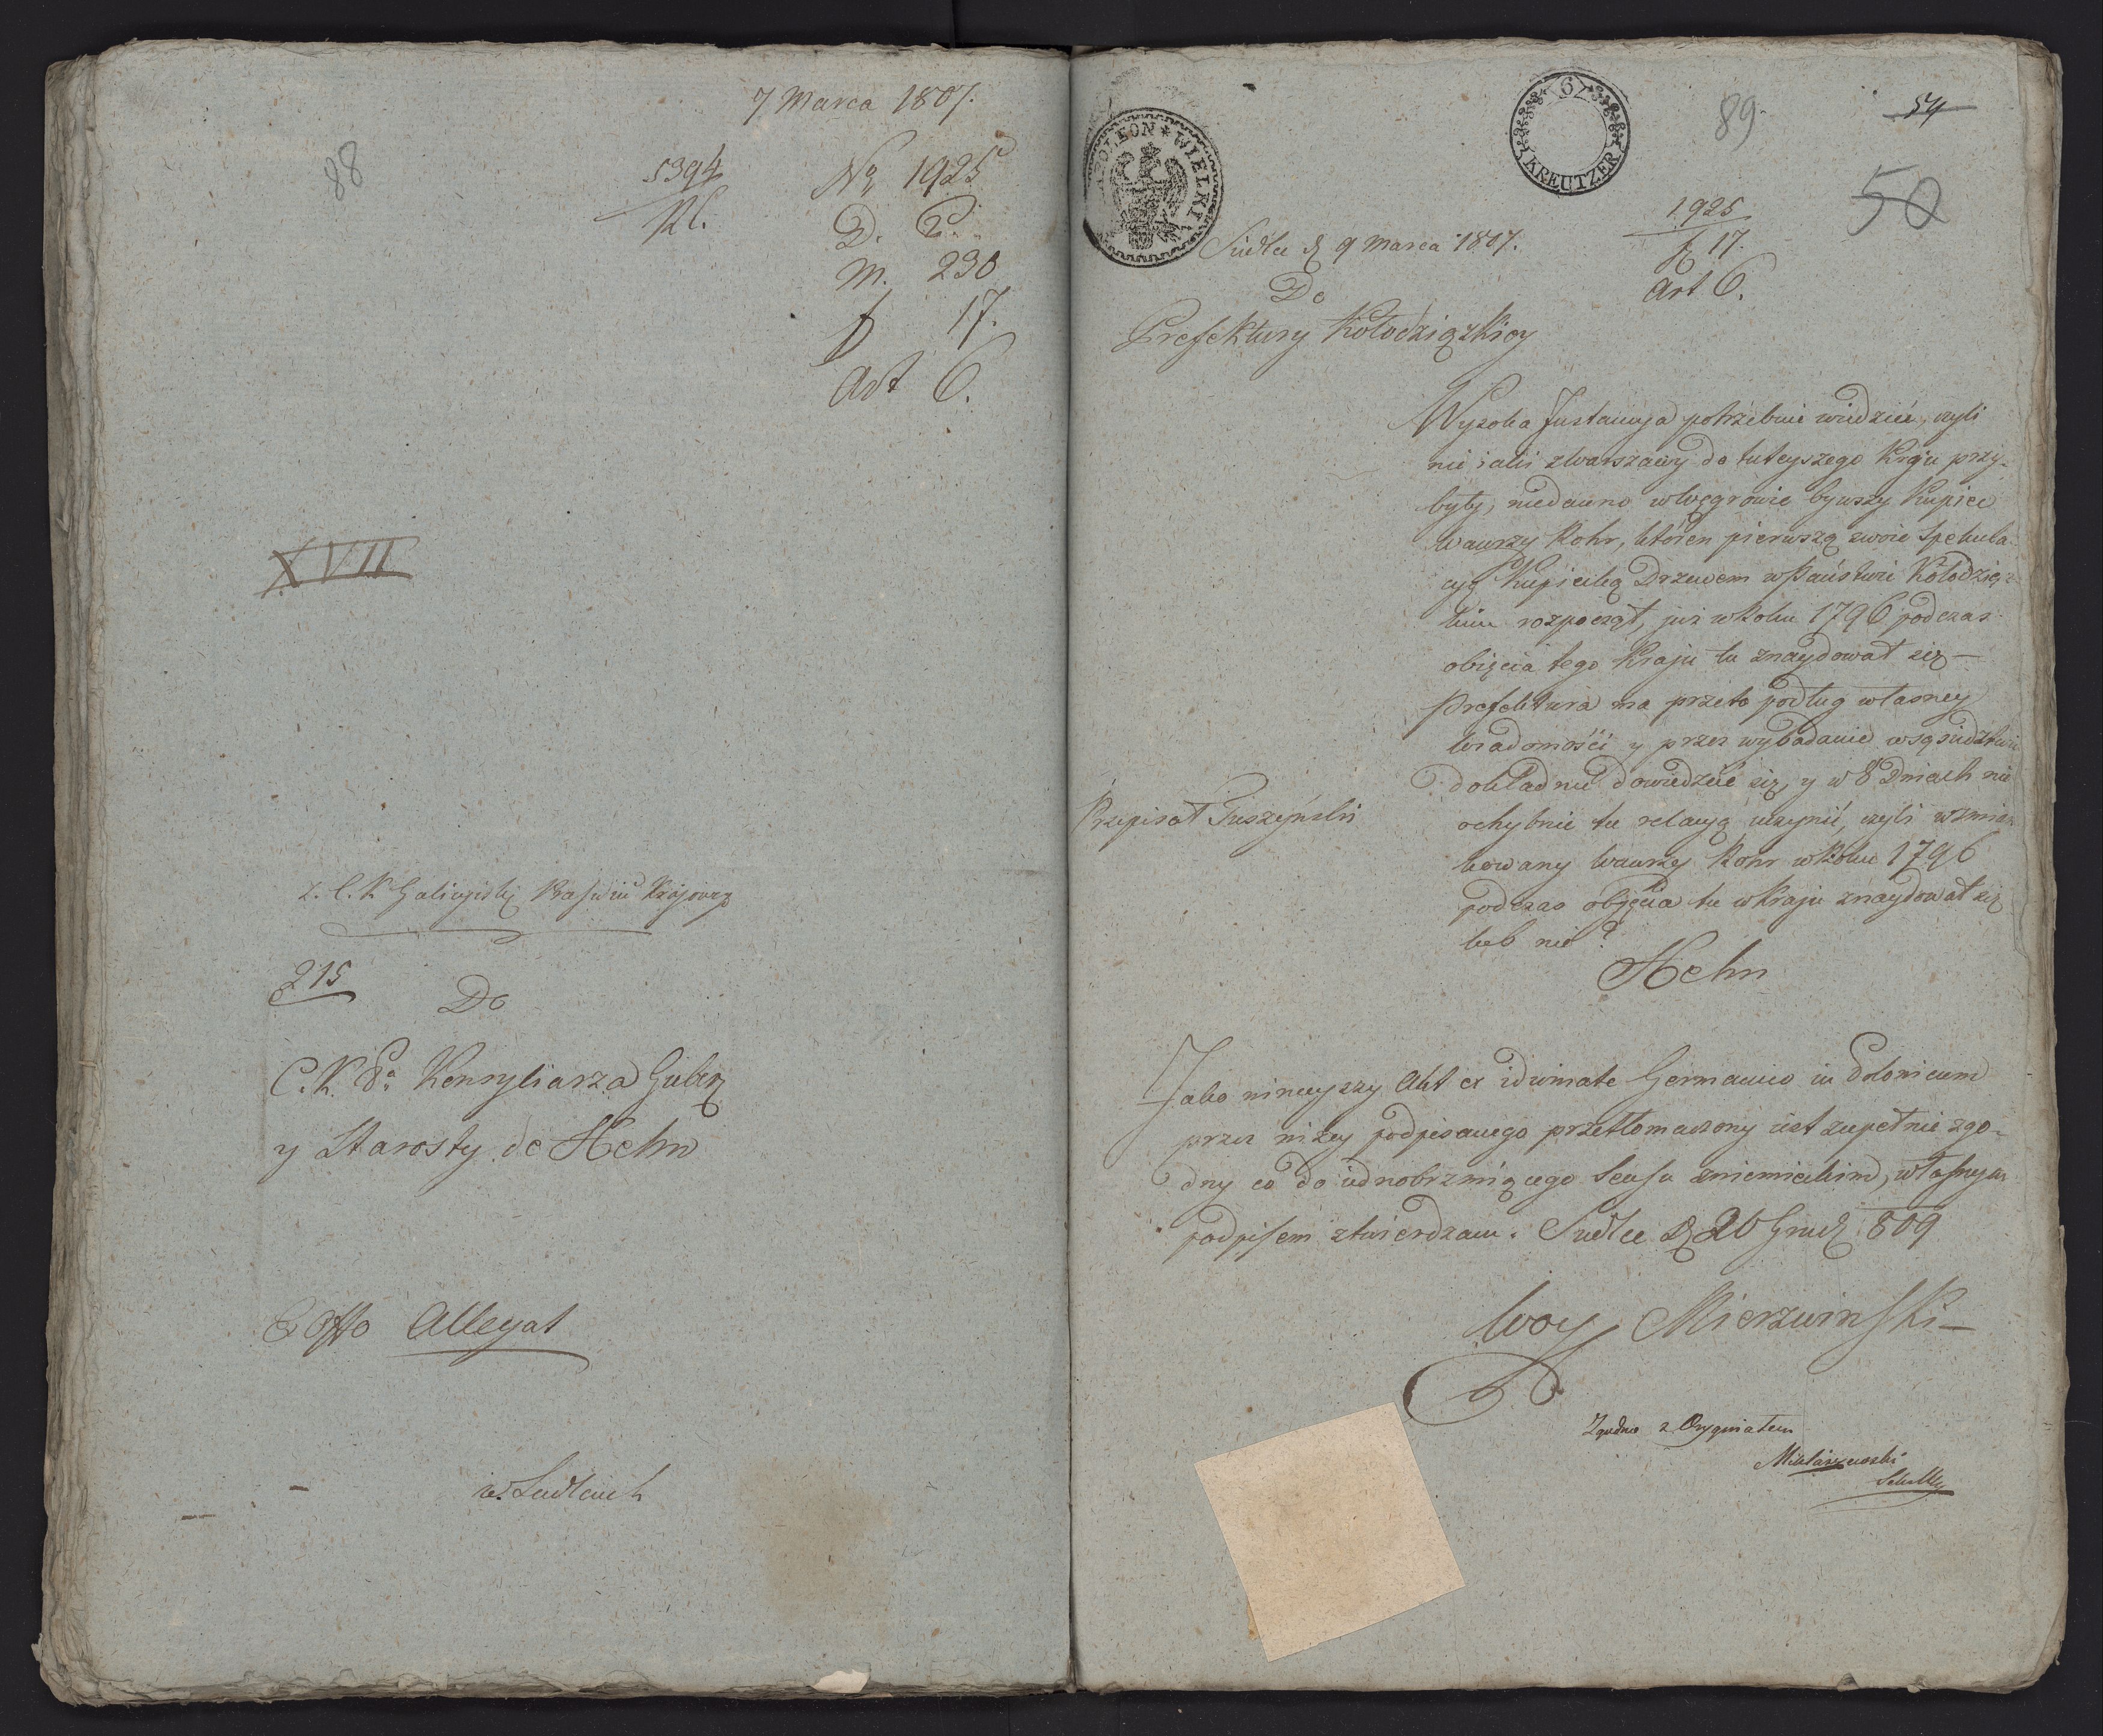 7 Marca 1807.
88
5394
Kl.
No 1925
D. P.
m. 230
f 17.
Art 6.
XVII
z. C. K Galicyiskiy Krajowey
215
Do
C. K. Konsyliarza Gubern
y Starosty de Hehn
Ex Offo Allegat
w. Siedlcach
NAPOLEON * WIELKI
6 KREUTZER
89
54
50
1925
f 17.
Art 6.
Siedlce d 9 Marca 1807.
Do
Prefektury Kołodziązkiey
Wysoka Instancyja potrzebuie wiedzieć, czyli
nie iakis zWarszawy do tuteyszego Kraju przy-
były, niedawno wWęgrowie bywszy Kupiec
Wawrzy Kohr, któren pierwszą swoie Spekula-
cyą Kupiecką Drzewem wPaństwie Kołodziąz-
kim rozpoczął, już wRoku 1796 podczas
obięcia tego Kraju tu znaydował się —
Prefektura ma przeto podług własney
wiadomości y przez wybadanie wsąsiedztwie
dokładnie dowiedzieć się, y w 8 Dniach nie
ochybnie tu relacyą uczynić, czyli wzmian-
kowany Wawrzy Kohr wRoku 1796
podczas objęcia tu wKraju znaydował się
lub nie?
Przepisał Tuszyński
Hehn
Jako ninieyszy Akt ex idiomate Germanico in Polonicum
przez niżey podpisanego przetłomaczony iest zupełnie zgo-
dny co do iednobrzmiącego Sensu zniemieckim, własnym
podpisem stwierdzam. Siedlce d 20 Grud 809
Woy Mierzwinski —
Zgodno z Oryginałem